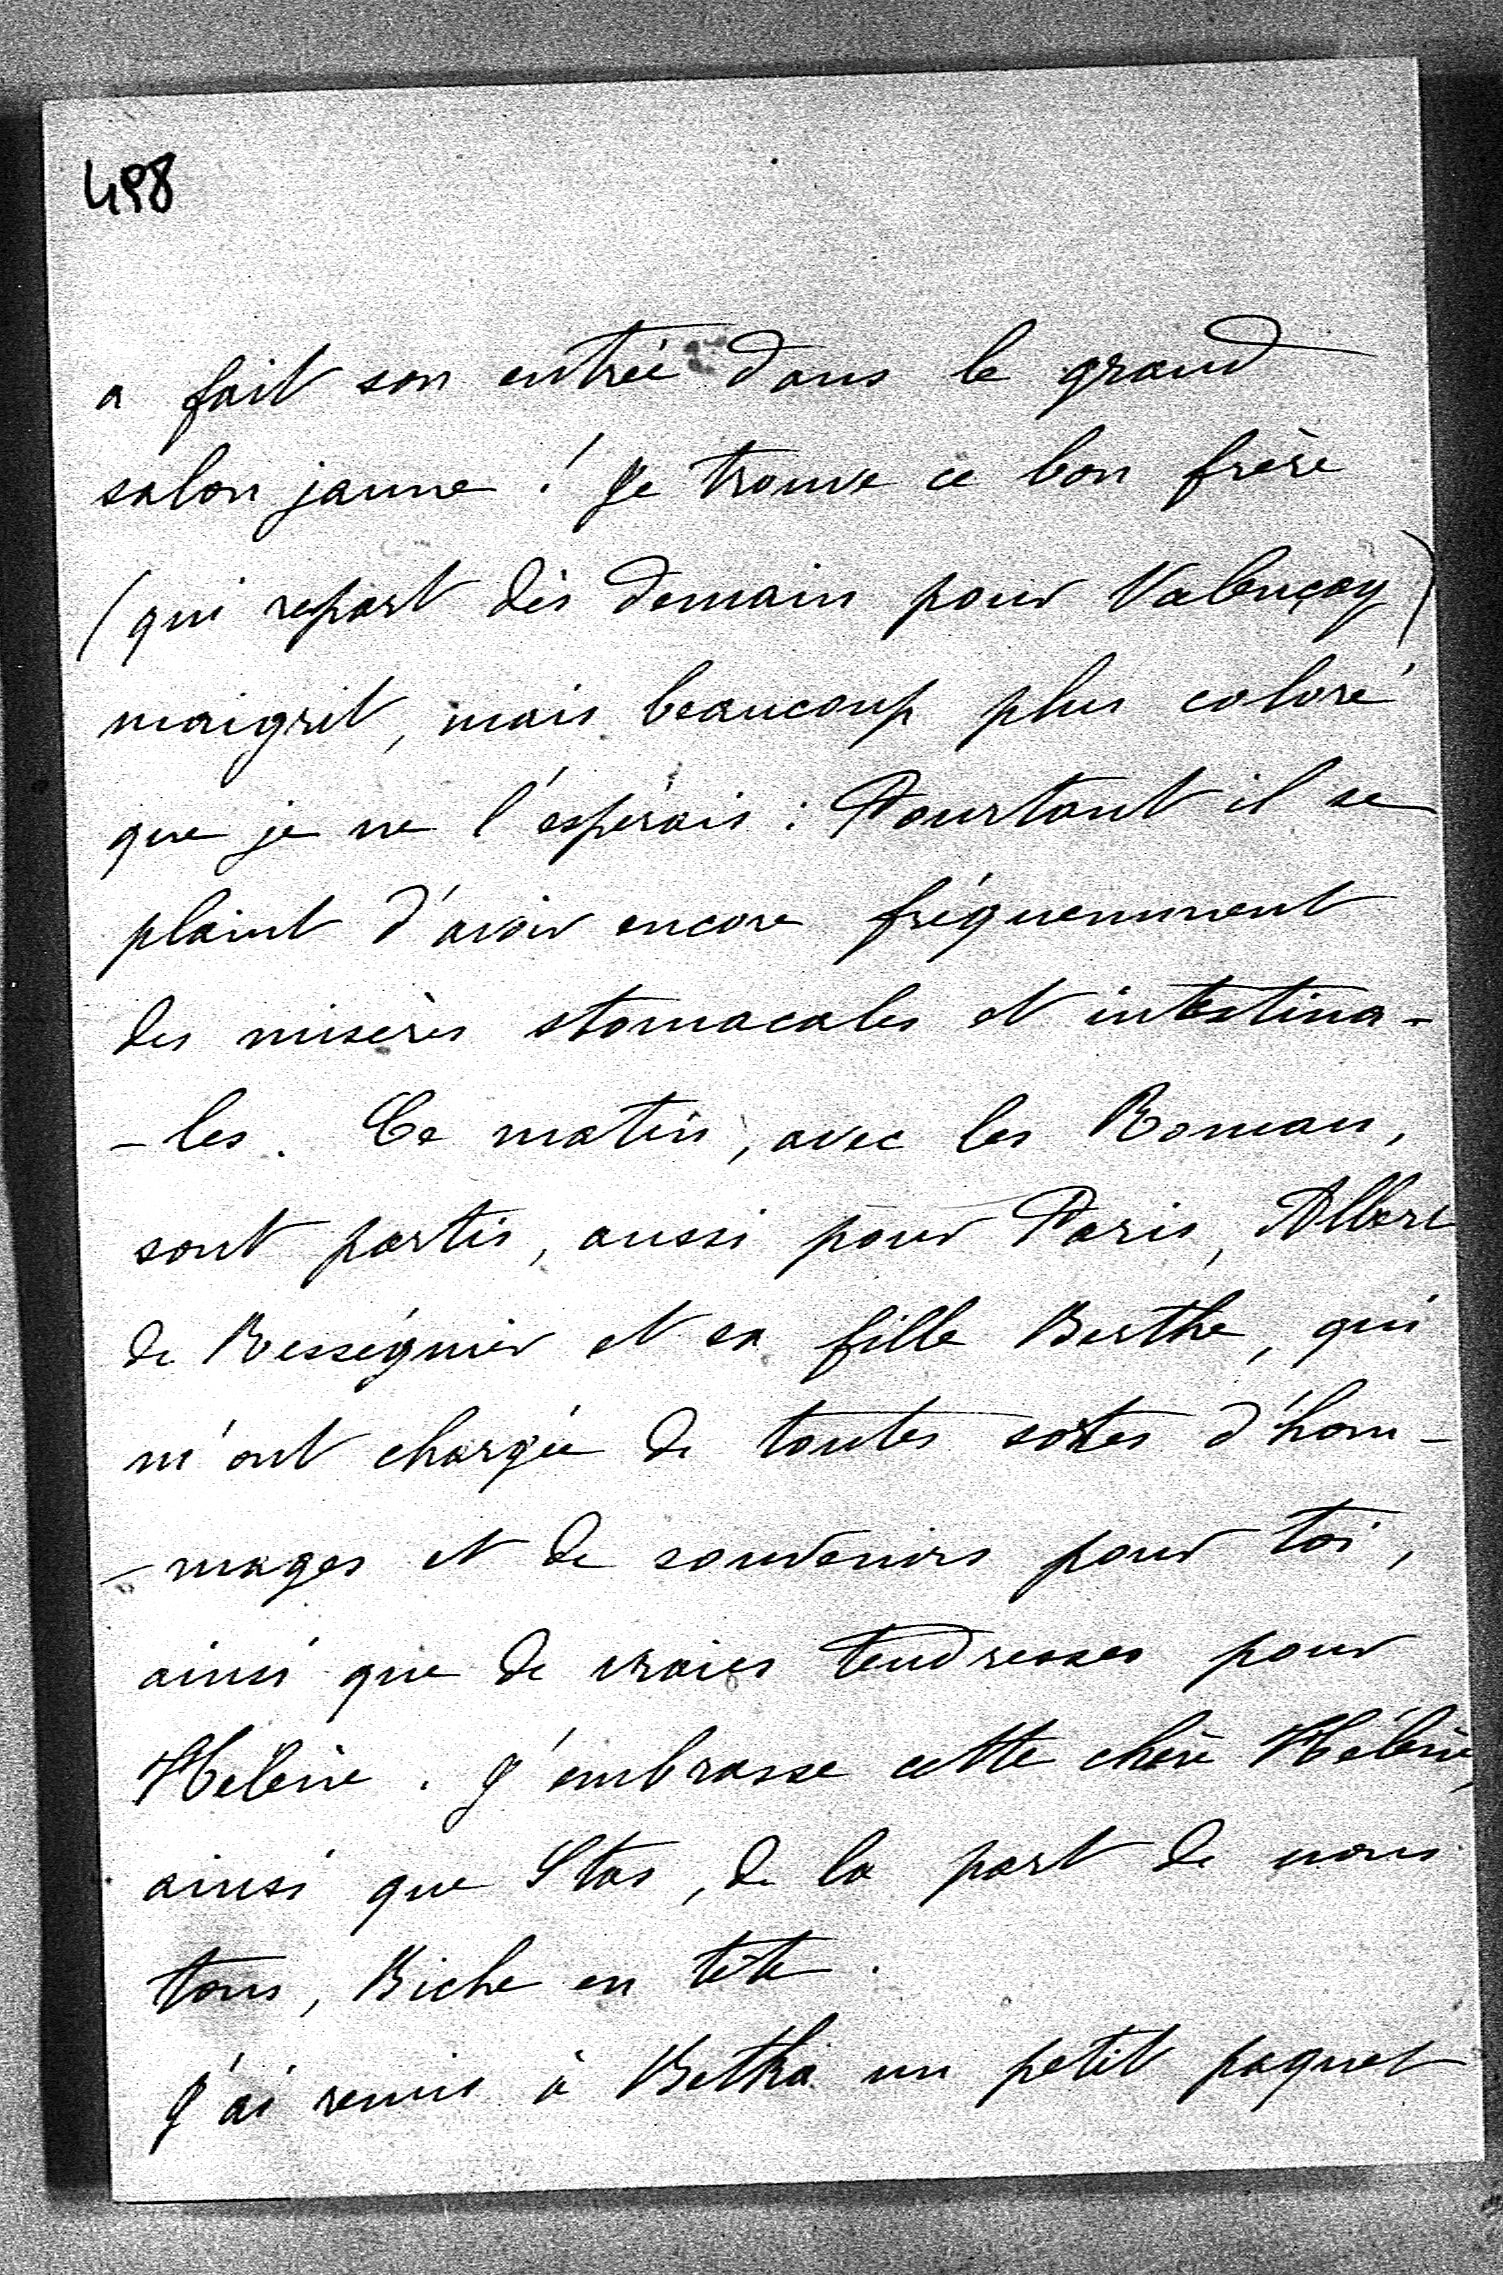 498
a fait son entrée dans le grand
salon jaune ! Je trouve ce bon frère
(qui repart dès demain pour Valençay)
maigrit, mais beaucoup plus coloré
que je ne l'espérais : Pourtant il se
plaint d'avoir encore fréquemment
des misères stomacales et intestina-
-les. Ce matin, avec les Roman,
sont partis, aussi pour Paris, Albert
de Rességuier et sa fille Berthe, qui
m'ont chargée de toutes sortes d'hom-
-mages et de souvenirs pour toi,
ainsi que de vraies tendresses pour
Hélène. J'embrasse cette chère Hélène,
ainsi que Stas, de la part de nous
tous, Biche en tête.
J'ai remis à Betka un petit paquet